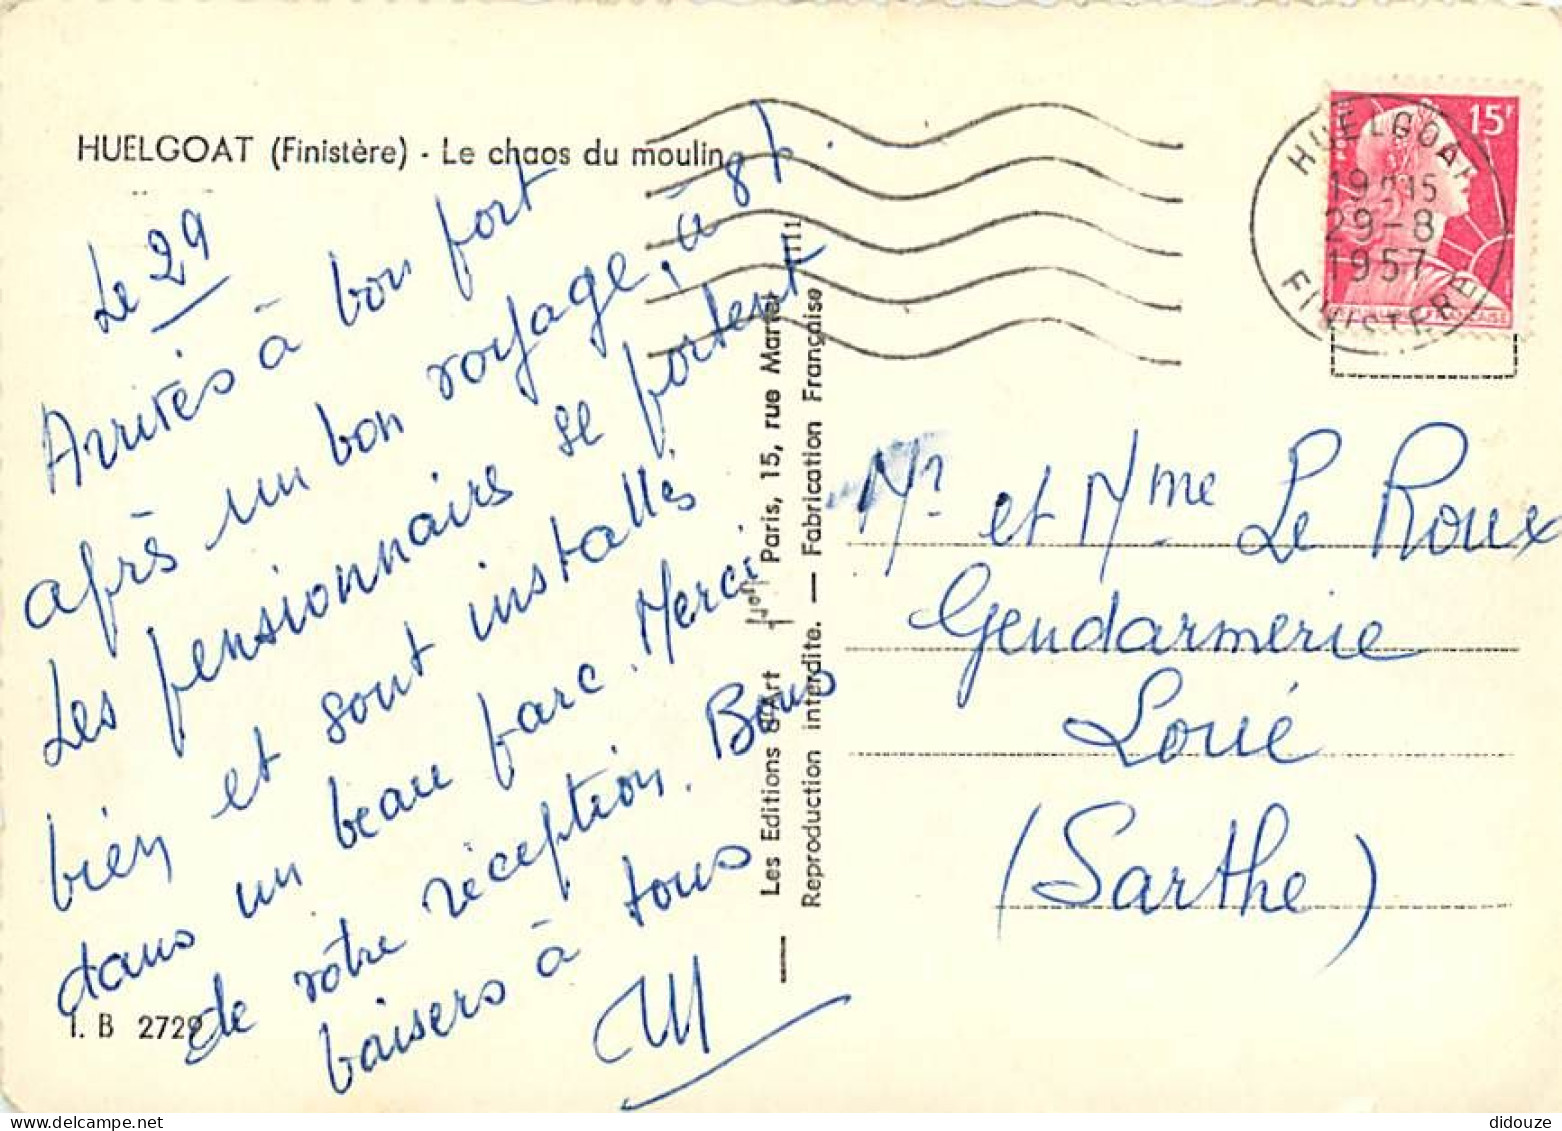 HUELGOAT (Finistère) - Le chaos du moulin
Le 29
Arrivés à bon port
après un bon voyage, à 8h.
Les pensionnaires se portent
bien et sont installés
dans un beau parc. Merci
de votre réception. Bons
baisers à tous
I. B 2729
Les Editions d'Art Paris, 15, rue Martel
Reproduction interdite. — Fabrication Française
15F
HUELGOAT
19H15
29-8
1957
FINISTERE
Mr et Mme Le Roux
Gendarmerie
Loué
(Sarthe)
didouze